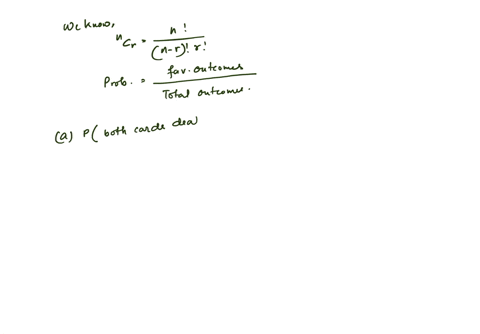 We know,
ⁿCᵣ = n! / (n-r)! r!
Prob. = fav. outcomes / Total outcomes.
(a) P( both cards dea